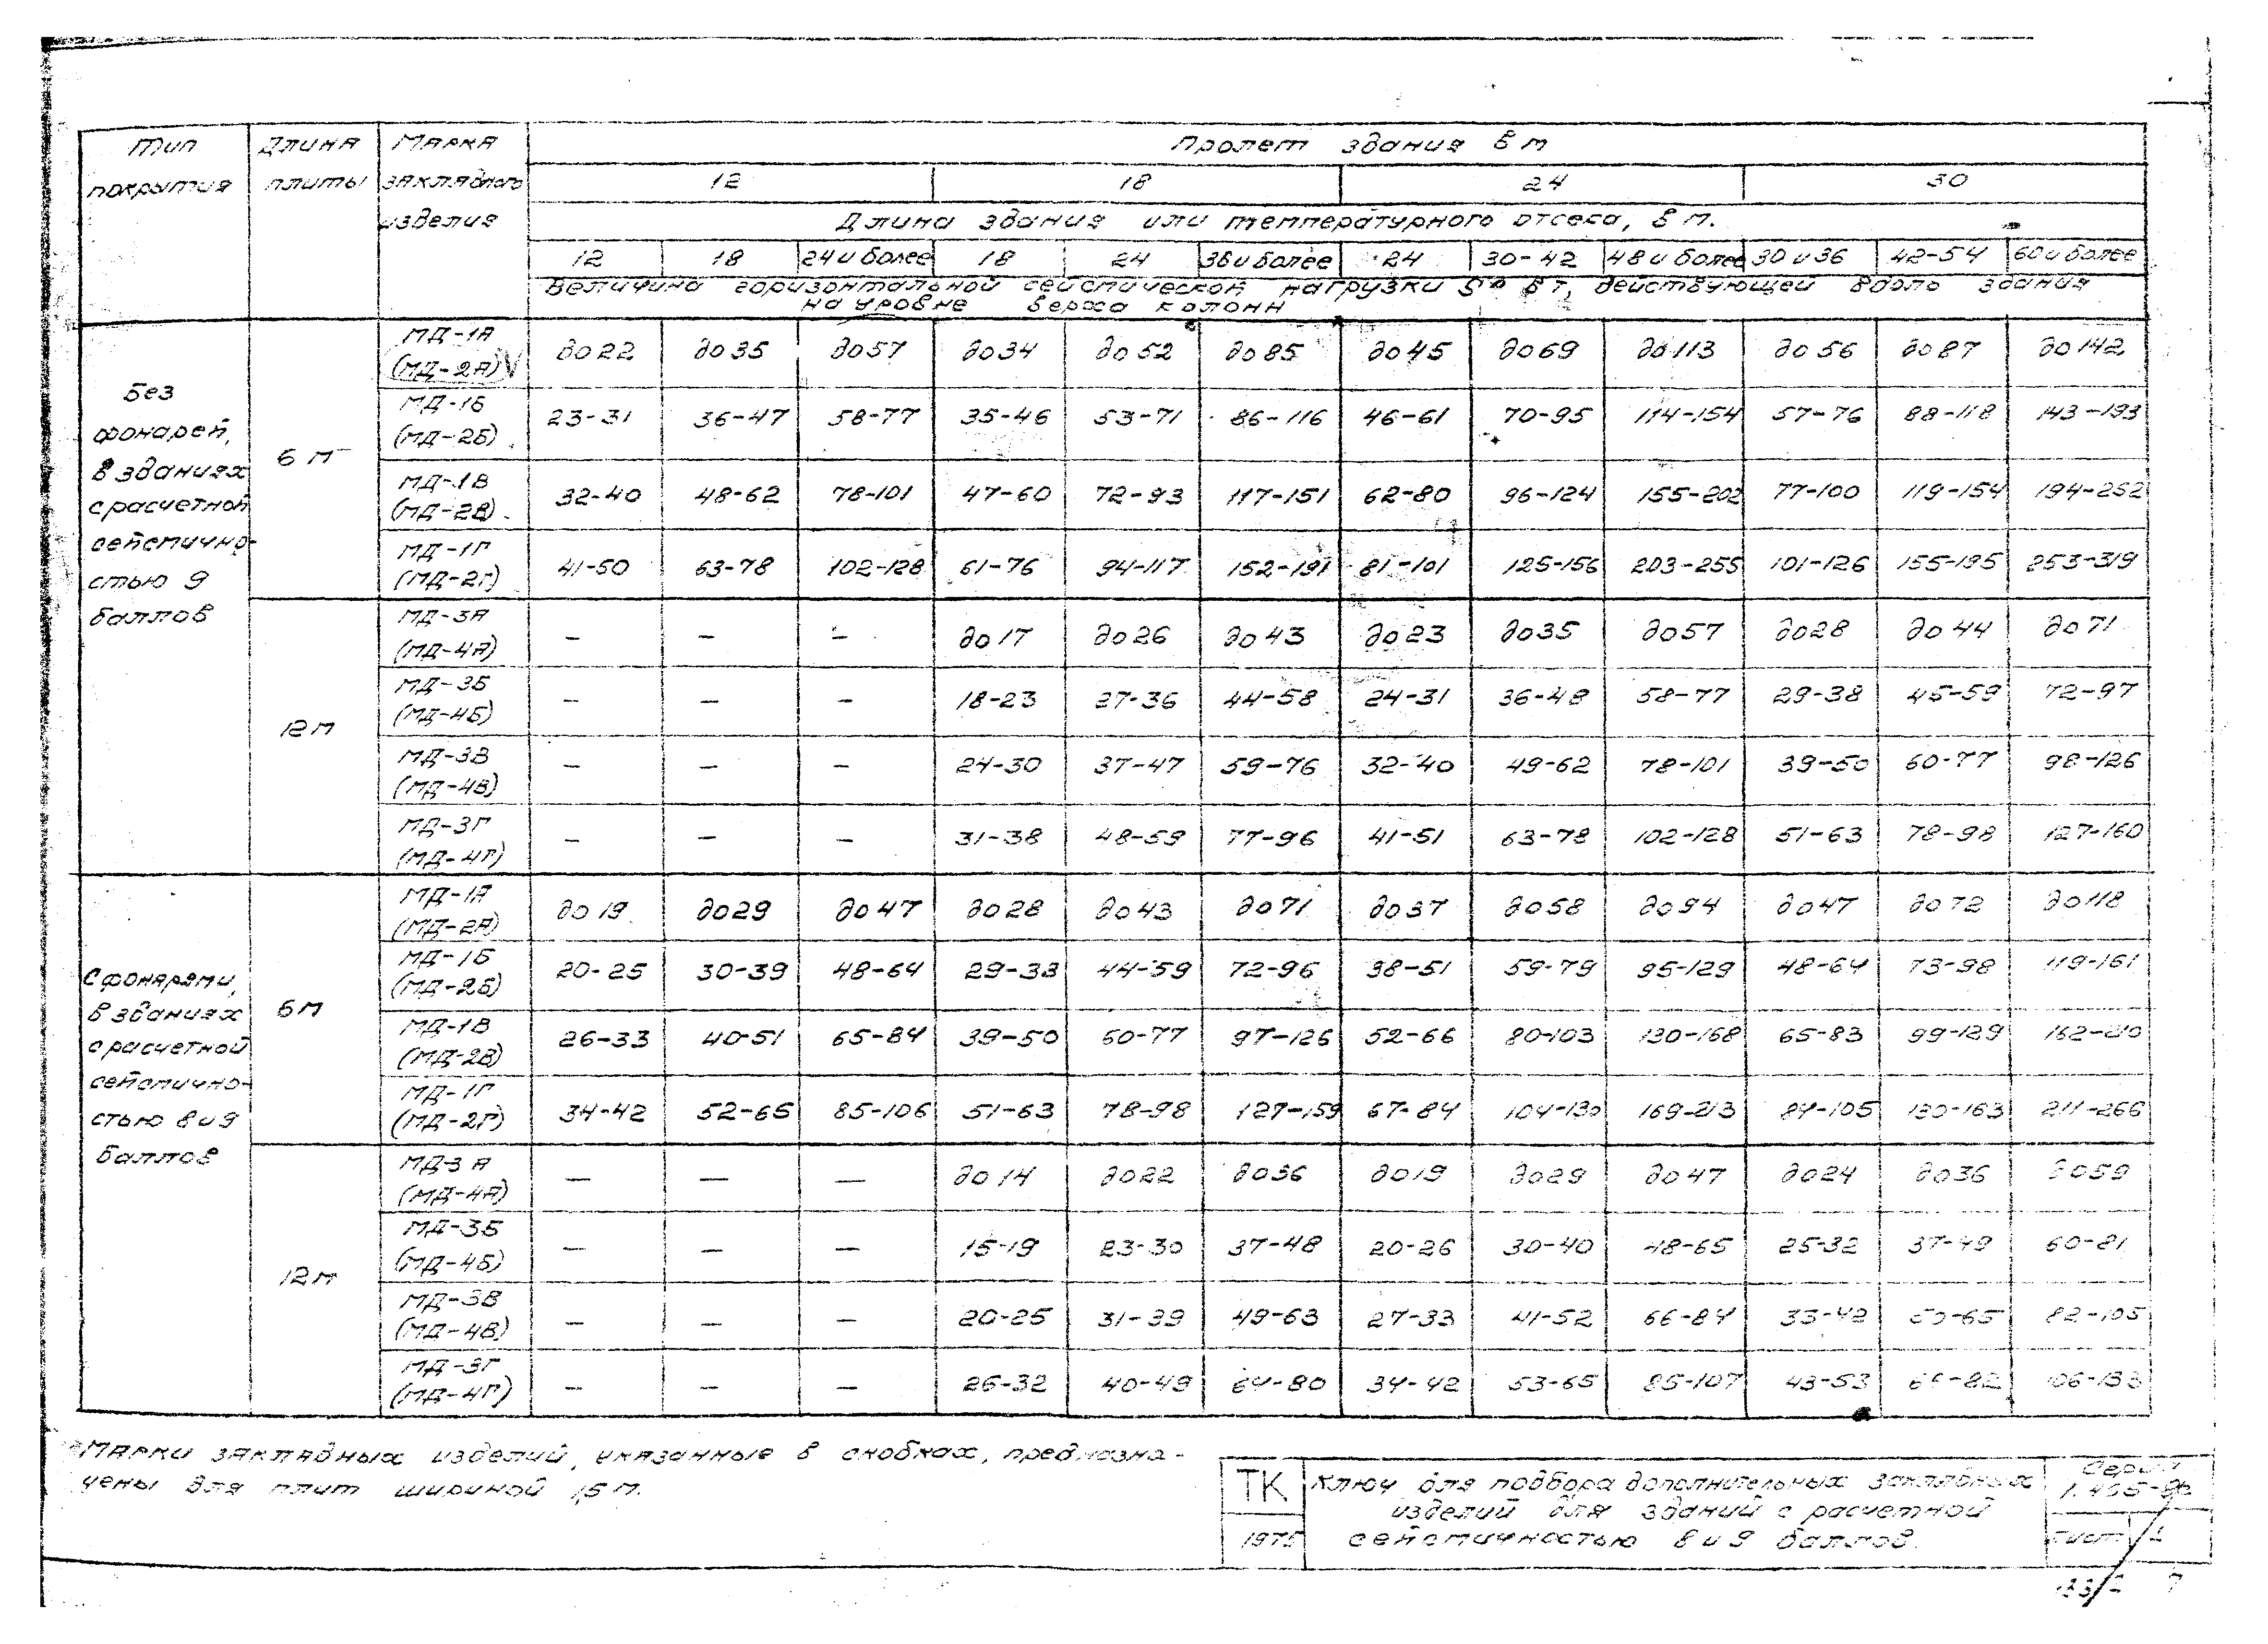 Тип Длина Марка Пролет здания в м
покрытия плиты закладного 12 18 24 30
изделия Длина здания или температурного отсека, в м.
12 18 24 и более 18 24 36 и более 24 30-42 48 и более 30 и 36 42-54 60 и более
Величина горизонтальной сейсмической нагрузки в т, действующей вдоль здания
на уровне верха колонн
Без
фонарей,
в зданиях
с расчетной
сейсмично-
стью 9
баллов
6 м
МД-1А
(МД-2А) до 22 до 35 до 57 до 34 до 52 до 85 до 45 до 69 до 113 до 56 до 87 до 142
МД-1Б
(МД-2Б) 23-31 36-47 58-77 35-46 53-71 86-116 46-61 70-95 114-154 57-76 88-118 143-193
МД-1В
(МД-2В) 32-40 48-62 78-101 47-60 72-93 117-151 62-80 96-124 155-202 77-100 119-154 194-252
МД-1Г
(МД-2Г) 41-50 63-78 102-128 61-76 94-117 152-191 81-101 125-156 203-255 101-126 155-195 253-319
12 м
МД-3А
(МД-4А) — — — до 17 до 26 до 43 до 23 до 35 до 57 до 28 до 44 до 71
МД-3Б
(МД-4Б) — — — 18-23 27-36 44-58 24-31 36-48 58-77 29-38 45-59 72-97
МД-3В
(МД-4В) — — — 24-30 37-47 59-76 32-40 49-62 78-101 39-50 60-77 98-126
МД-3Г
(МД-4Г) — — — 31-38 48-59 77-96 41-51 63-78 102-128 51-63 78-98 127-160
С фонарями,
в зданиях
с расчетной
сейсмично-
стью 8 и 9
баллов
6 м
МД-1А
(МД-2А) до 19 до 29 до 47 до 28 до 43 до 71 до 37 до 58 до 94 до 47 до 72 до 118
МД-1Б
(МД-2Б) 20-25 30-39 48-64 29-38 44-59 72-96 38-51 59-79 95-129 48-64 73-98 119-161
МД-1В
(МД-2В) 26-33 40-51 65-84 39-50 60-77 97-126 52-66 80-103 130-168 65-83 99-129 162-210
МД-1Г
(МД-2Г) 34-42 52-65 85-106 51-63 78-98 127-159 67-84 104-130 169-213 84-105 130-163 211-266
12 м
МД-3А
(МД-4А) — — — до 14 до 22 до 36 до 19 до 29 до 47 до 24 до 36 до 59
МД-3Б
(МД-4Б) — — — 15-19 23-30 37-48 20-26 30-40 48-65 25-32 37-49 60-81
МД-3В
(МД-4В) — — — 20-25 31-39 49-63 27-33 41-52 66-84 33-42 50-65 82-105
МД-3Г
(МД-4Г) — — — 26-32 40-49 64-80 34-42 53-65 85-107 43-53 66-82 106-133
Марки закладных изделий, указанные в скобках, предназна-
чены для плит шириной 1,5 м.
ТК
1975
Ключ для подбора дополнительных закладных
изделий для зданий с расчетной
сейсмичностью 8 и 9 баллов.
Серия
Лист 1
7